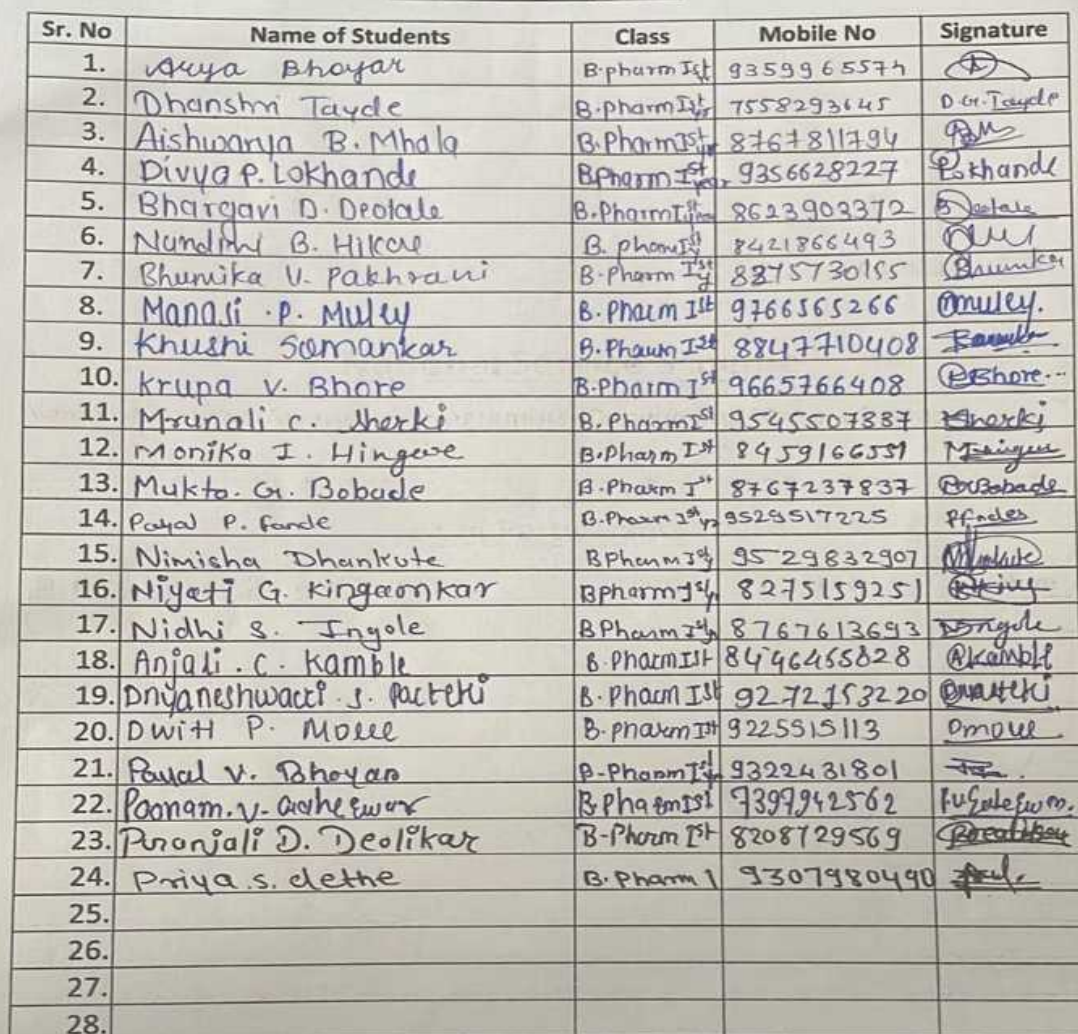 Sr. No Name of Students Class Mobile No Signature
1. Arya Bhoyar B.pharm Ist 9359965574
2. Dhanshri Tayde B.Pharm Ist yr 7558293645 D.G.Tayde
3. Aishwarya B. Mhala B.Pharm Ist 8767811794
4. Divya P. Lokhande BPharm Ist year 9356628227 P.Lokhande
5. Bhargavi D. Deotale B.Pharm Ist 8623903372 B Deotale
6. Nandini B. B. pharm Ist 8421866493
7. Bhumika V. Pakhrani B.Pharm Ist y 8275730155 Bhumika
8. Manasi .P. Muley B.Pharm Ist 9766565266 muley.
9. Khushi Somankar B.Pharm Ist 8847710408
10. Krupa V. Bhore B.Pharm Ist 9665766408 Bhore
11. Mrunali C. Sherki B.Pharm Ist 9545507387 Sherki
12. Monika I. Hingwe B.Pharm Ist 8459166551
13. Mukta. G. Bobade B.Pharm Ist 8767237837 Bobade
14. Payal P. Fande B.Pharm Ist yr 9529517225
15. Nimisha Dhankute BPharm Ist y 9529832907
16. Niyati G. Kingaonkar Bpharm Ist y 8275159251
17. Nidhi S. Ingole BPharm Ist y 8767613693 Ingole
18. Anjali . C . Kamble B.Pharm Ist 8446455828 Kamble
19. Dnyaneshwari . S. B. Pharm Ist 9272153220
20. P. B.Pharm Ist 9225515113
21. Payal V. Bhoyar B-Pharm Ist 9322431801
22. Poonam.V. B.Pharm Ist 7397942562
23. Pranjali D. Deolikar B-Pharm Ist 8208729569
24. Priya.S. dethe B.Pharm 1 9307980490
25.
26.
27.
28.